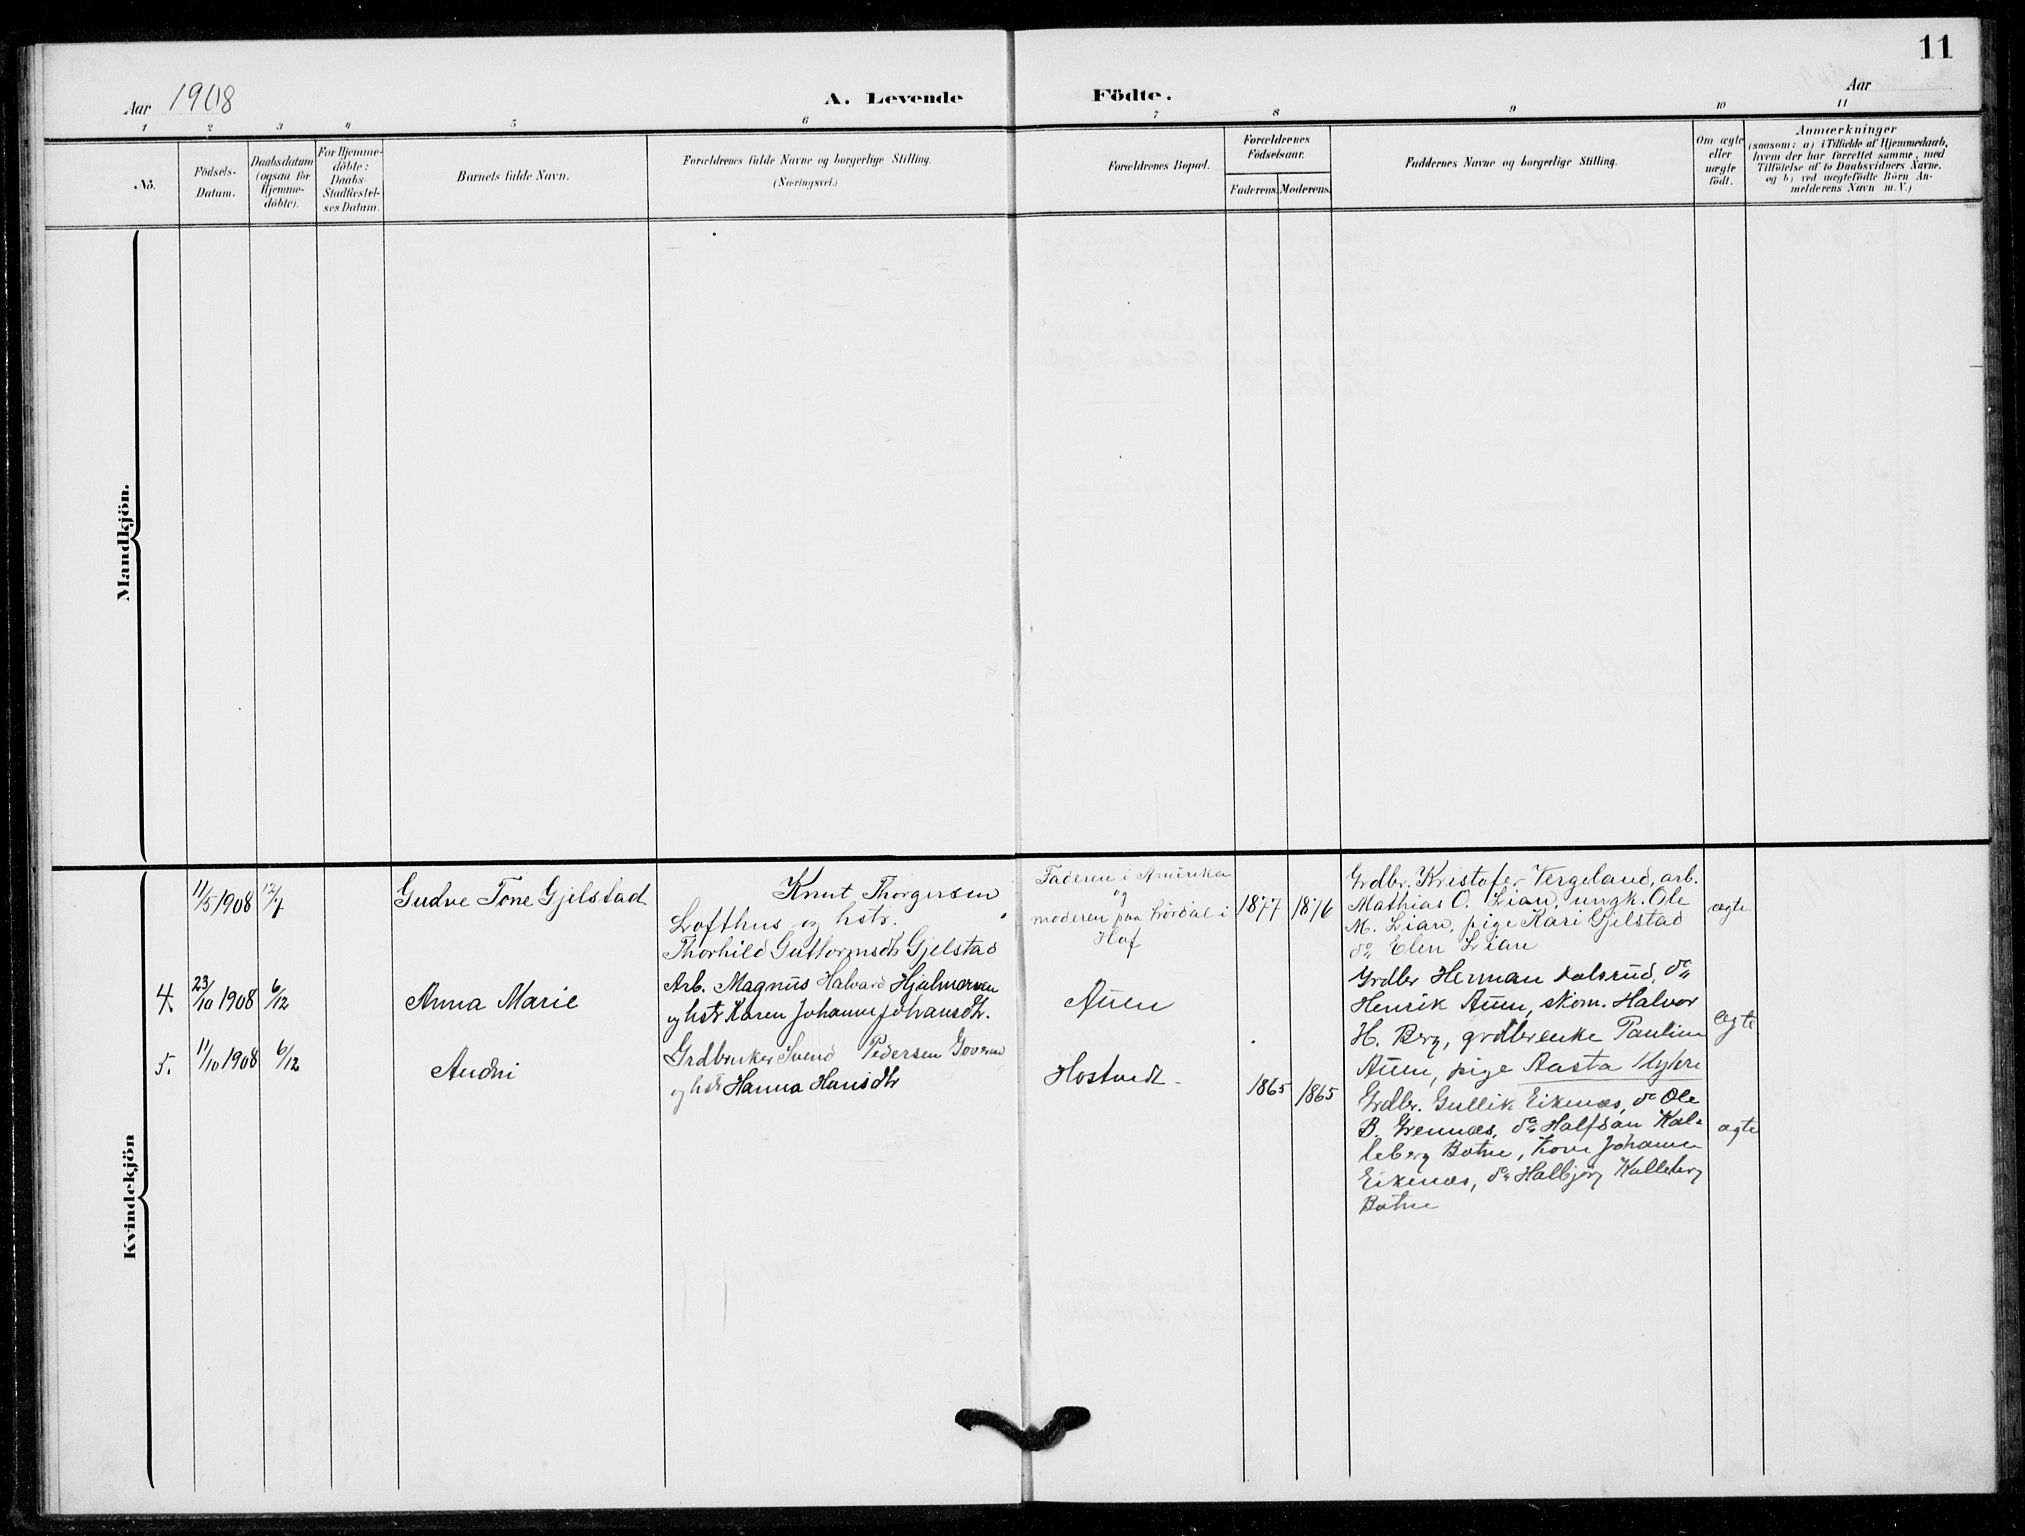 11
Aar 1908
A. Levende Födte.
Aar
1 2 3 4 5 6 7 8 9 10 11
No.
Födsels-Datum.
Daabsdatum (ogsaa for Hjemme-döbte).
For Hjemme-döbte: Daabs-Stadfæstel-ses Datum.
Barnets fulde Navn.
Forældrenes fulde Navne og borgerlige Stilling.
(Næringsvei.)
Forældrenes Bopæl.
Forældrenes Födselsaar.
Faderens. Moderens.
Faddernes Navne og borgerlige Stilling.
Om ægte eller uægte födt.
Anmærkninger
(saasom: a) i Tilfælde af Hjemmedaab,
hvem der har forrettet samme, med
Tilföielse af to Daabsvidners Navne.
og b) ved uægtefödte Börn An-
melderens Navn m. V.)
Mandkjön.
Kvindekjön
11/5 1908 12/7
Gudve Tone Gjelstad
Knut Thorgersen
Lofthus og hstr.
Thorhild Guttormsdtr Gjelstad
Faderen i Amerika
og
moderen paa Lördal i
Hof
1877 1876
Grdbr. Kristofer Vergeland, arb.
Mathias O. Lian, ungk. Ole
M. Lian, pige Kari Gjelstad
do Elen Lian
ægte
4. 23/10 1908 6/12
Anna Marie
Arb. Magnus Halvard Hjalmarsen
og hstr Karen Johanne Johansdtr.
Auen
Grdbr Herman Dalsrud, do
Henrik Auen, skom. Halvor
H. Berg, grdbrenke Pauline
Auen, pige Aasta Myhre
ægte
5. 11/10 1908 6/12
Audni
Grdbruker Svend Pedersen Goverud
og hstr Hanna Hansdtr
Hostvedt
1865 1865
Grdbr. Gullik Eikenæs, do Ole
B. Grennæs, do Halfdan Kal-
leberg Botne, Kone Johanne
Eikenæs, do Halbjörg Kalleberg
Botne
ægte